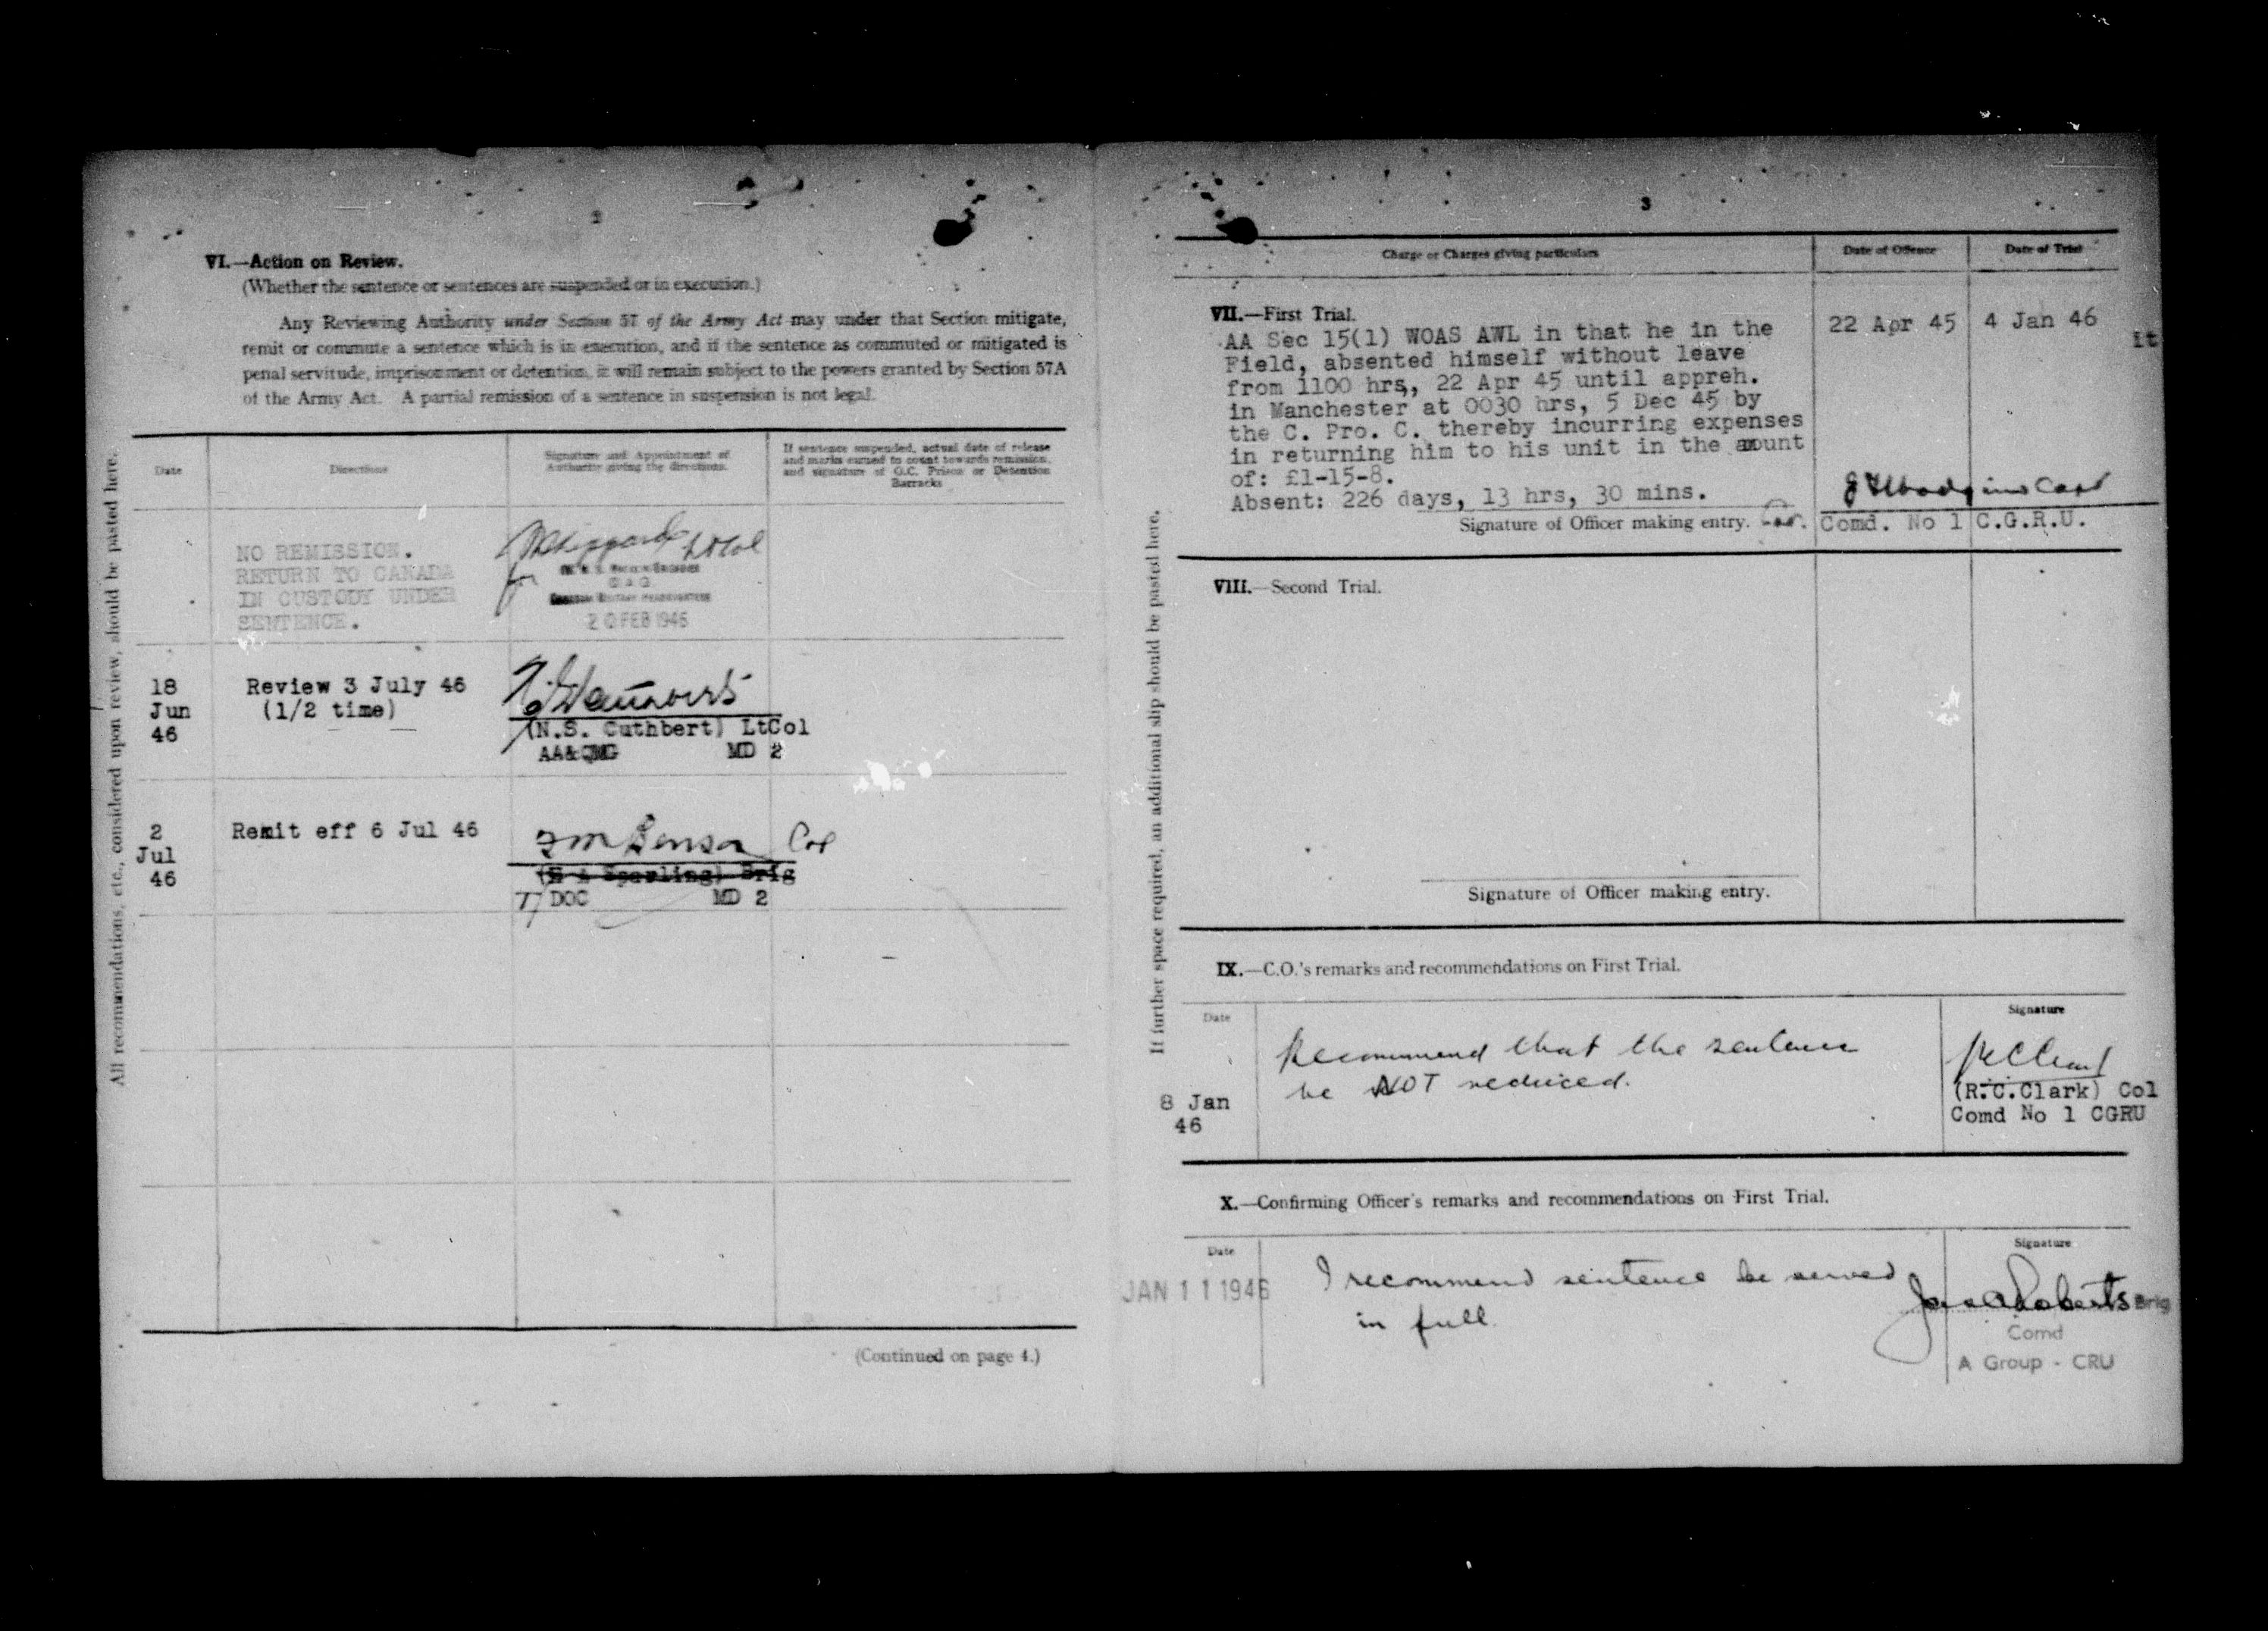 2
VI.—Action on Review.
(Whether the sentence or sentences are suspended or in execution.)
Any Reviewing Authority under Section 57 of the Army Act may under that Section mitigate,
remit or commute a sentence which is in execution, and if the sentence as commuted or mitigated is
penal servitude, imprisonment or detention, it will remain subject to the powers granted by Section 57A
of the Army Act. A partial remission of a sentence in suspension is not legal.
All recommendations, etc., considered upon review, should be pasted here.
Date
Directions
Signature and Appointment of
Authority giving the directions.
If sentence suspended, actual date of release
and marks earned to count towards remission,
and signature of O.C. Prison or Detention
Barracks
NO REMISSION.
RETURN TO CANADA
IN CUSTODY UNDER
SENTENCE.
LtCol
for
CANADIAN MILITARY HEADQUARTERS
20 FEB 1946
18
Jun
46
Review 3 July 46
(1/2 time)
(N.S. Cuthbert) LtCol
AA&QMG MD 2
2
Jul
46
Remit eff 6 Jul 46
Col
Brig
DOC MD 2
(Continued on page 4.)
3
Charge or Charges giving particulars
Date of Offence
Date of Trial
VII.—First Trial.
AA Sec 15(1) WOAS AWL in that he in the
Field, absented himself without leave
from 1100 hrs,, 22 Apr 45 until appreh.
in Manchester at 0030 hrs, 5 Dec 45 by
the C. Pro. C. thereby incurring expenses
in returning him to his unit in the amount
of: £1-15-8.
Absent: 226 days, 13 hrs, 30 mins.
22 Apr 45
4 Jan 46
it
Signature of Officer making entry.
for. Comd. No 1 C.G.R.U.
If further space required, an additional slip should be pasted here.
VIII.—Second Trial.
Signature of Officer making entry.
IX.—C.O.'s remarks and recommendations on First Trial.
Date
Signature
8 Jan
46
Recommend that the sentence
be NOT reduced.
(R.C.Clark) Col
Comd No 1 CGRU
X.—Confirming Officer's remarks and recommendations on First Trial.
Date
Signature
JAN 11 1946
I recommend sentence be served
in full.
Roberts Brig
Comd
A Group - CRU